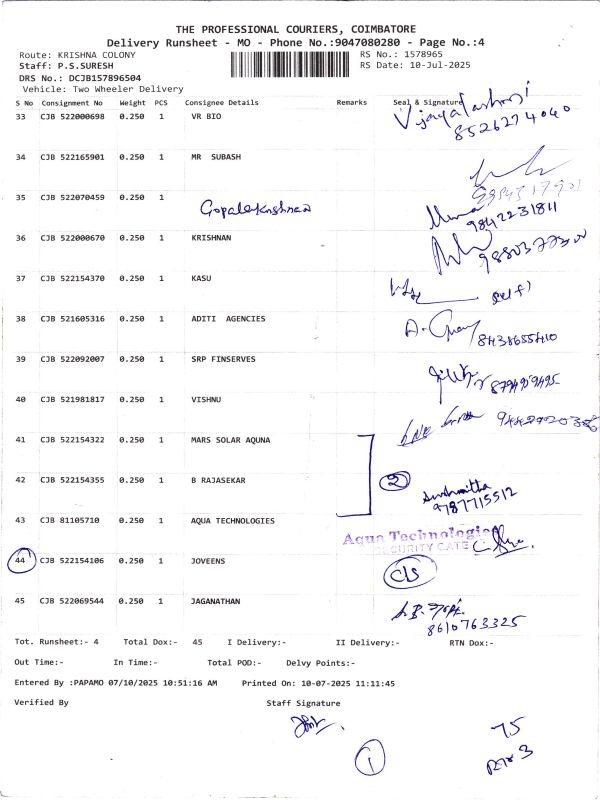 THE PROFESSIONAL COURIERS, COIMBATORE
Delivery Runsheet - MO - Phone No.:9047080280 - Page No.:4
Route: KRISHNA COLONY RS No.: 1578965
Staff: P.S.SURESH RS Date: 10-Jul-2025
DRS No.: DCJB157896504
Vehicle: Two Wheeler Delivery
S No Consignment No Weight PCS Consignee Details Remarks Seal & Signature
33 CJB 522000698 0.250 1 VR BIO Vijayalashmi
8526274060
34 CJB 522165901 0.250 1 MR SUBASH
35 CJB 522070459 0.250 1 Gopalakrishnan
9842231811
36 CJB 522000670 0.250 1 KRISHNAN
37 CJB 522154370 0.250 1 KASU self)
38 CJB 521605316 0.250 1 ADITI AGENCIES
8438655410
39 CJB 522092007 0.250 1 SRP FINSERVES
40 CJB 521981817 0.250 1 VISHNU
41 CJB 522154322 0.250 1 MARS SOLAR AQUNA
2
42 CJB 522154355 0.250 1 B RAJASEKAR Sushmitha
9787715512
43 CJB 81105710 0.250 1 AQUA TECHNOLOGIES
Aqua Technologies
SECURITY GATE
44 CJB 522154106 0.250 1 JOVEENS C/S
45 CJB 522069544 0.250 1 JAGANATHAN
8610763325
Tot. Runsheet:- 4 Total Dox:- 45 I Delivery:- II Delivery:- RTN Dox:-
Out Time:- In Time:- Total POD:- Delvy Points:-
Entered By :PAPAMO 07/10/2025 10:51:16 AM Printed On: 10-07-2025 11:11:45
Verified By Staff Signature
1